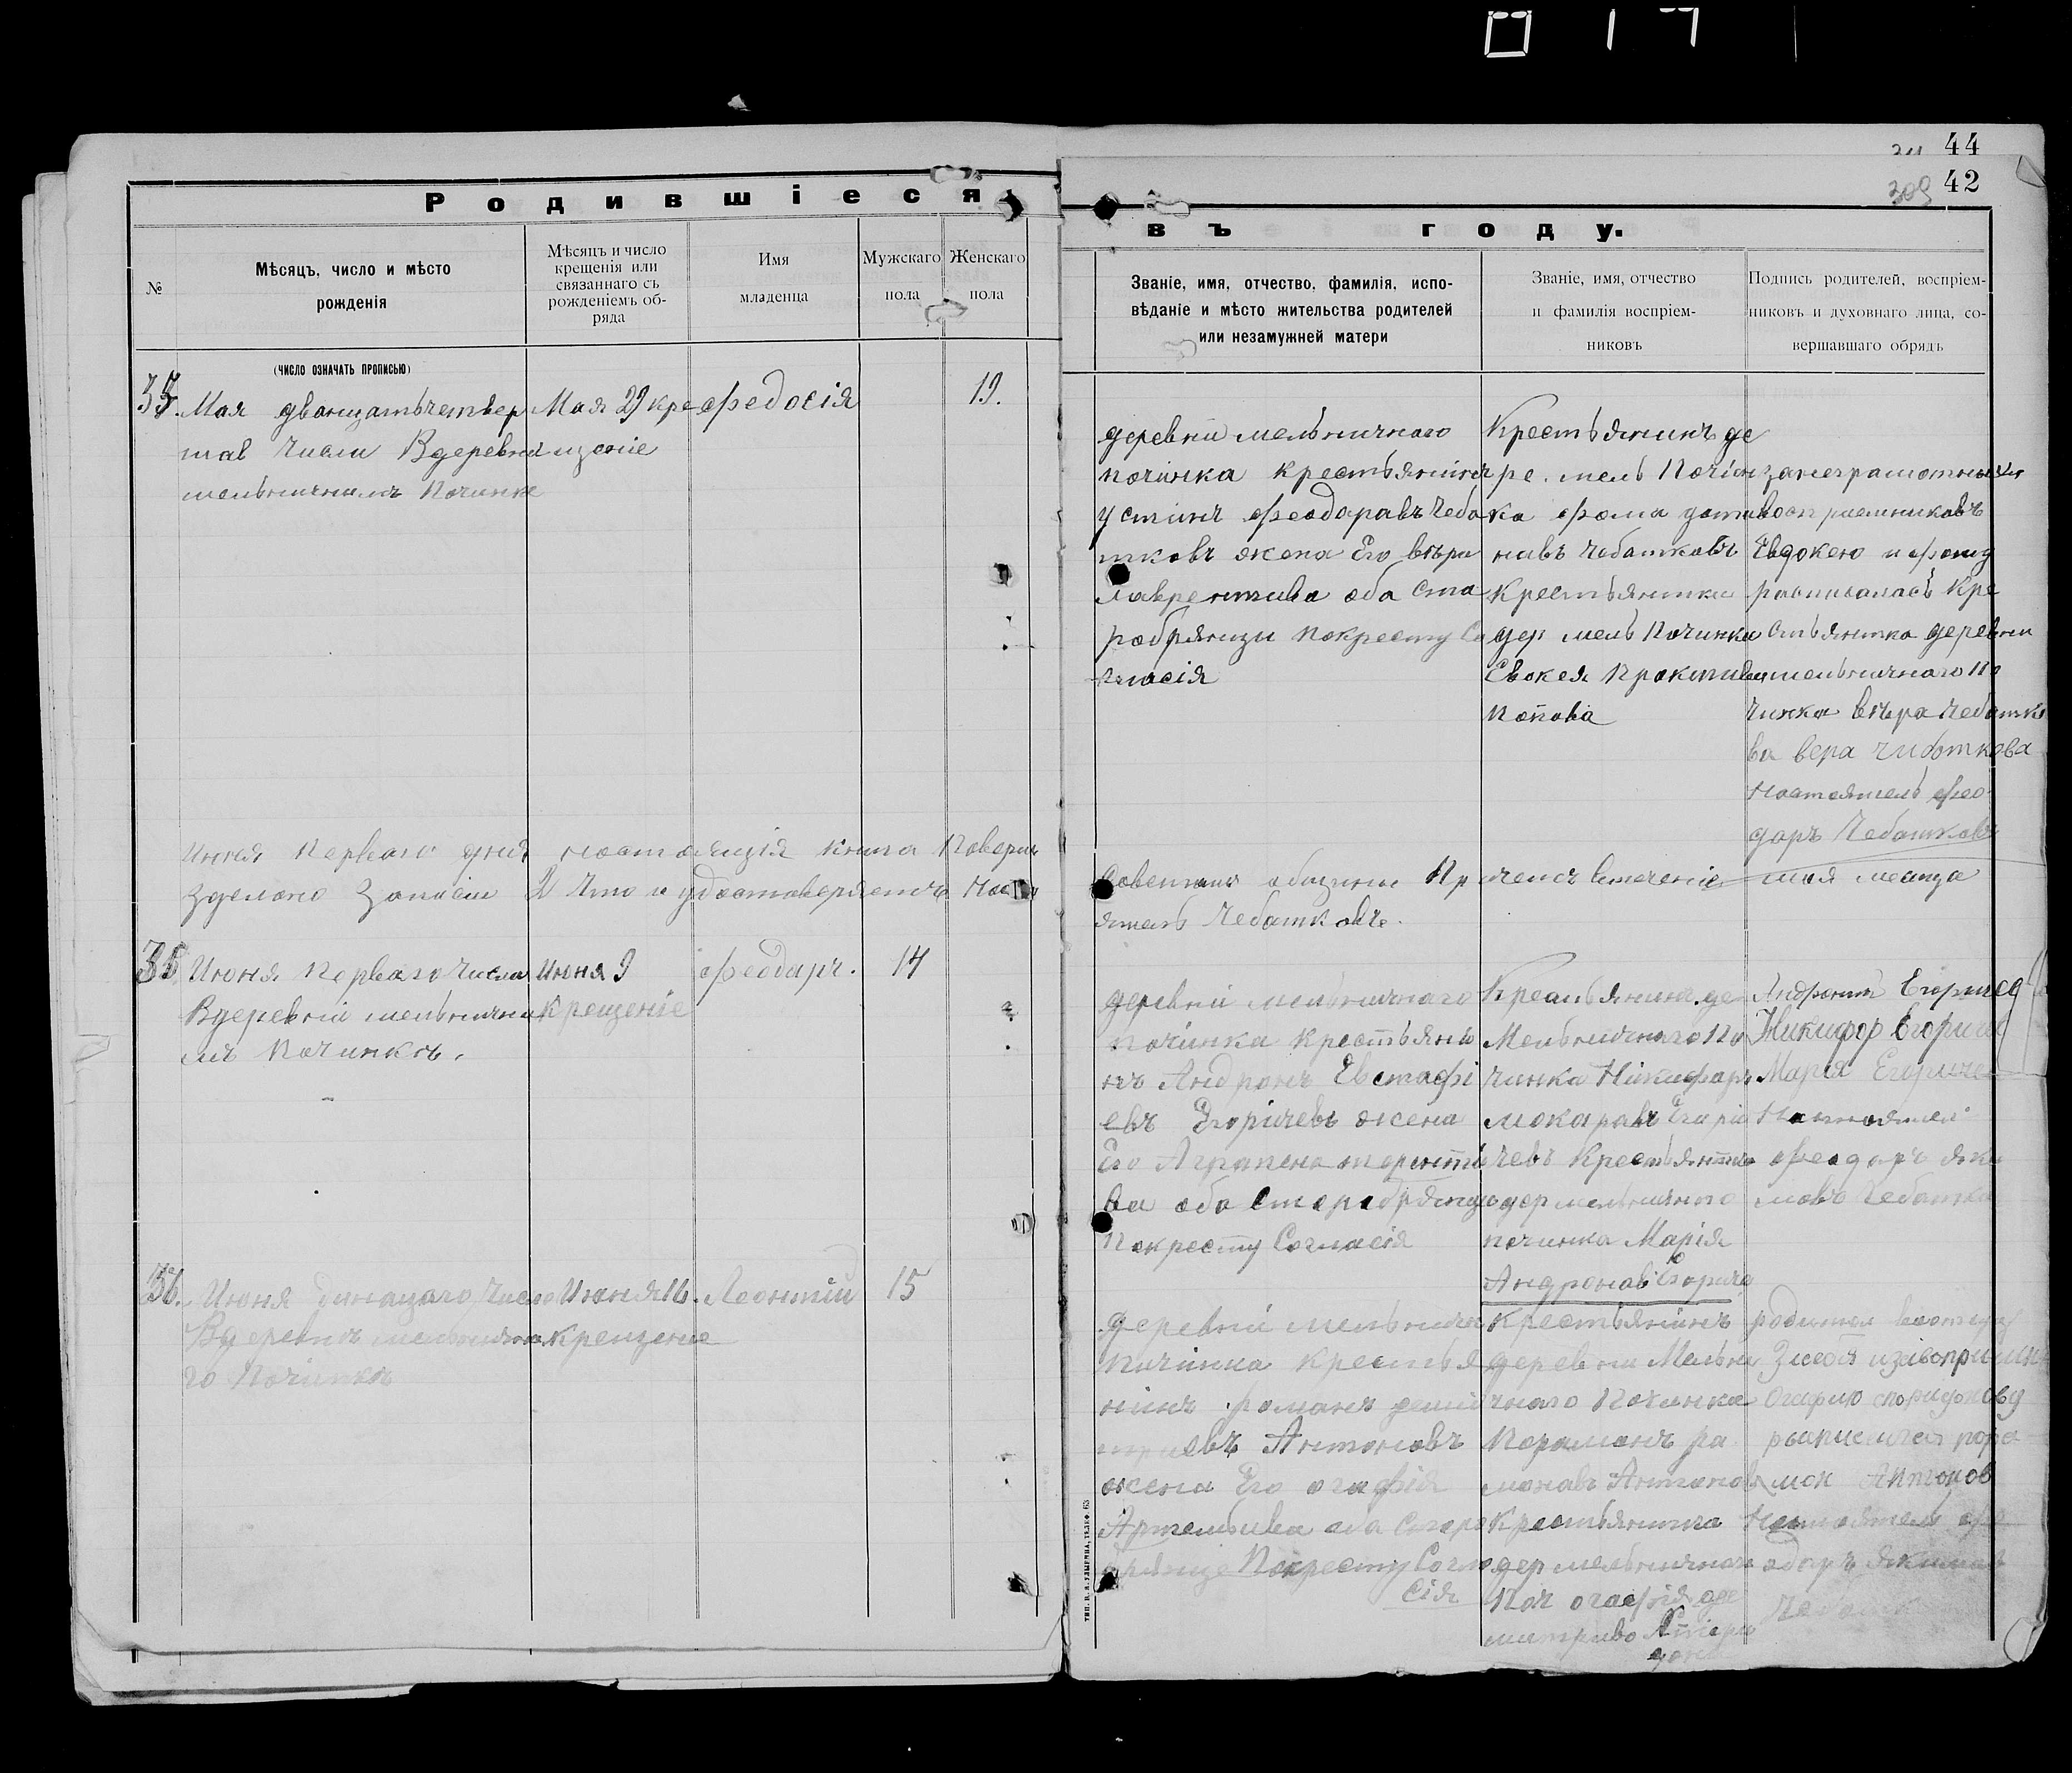 44
42
309
Родившіеся
въ году.
№
Мѣсяцъ, число и мѣсто
рожденія
Мѣсяцъ и число
крещенія или
связаннаго съ
рожденіемъ об-
ряда
Имя
младенца
Мужскаго
пола
Женскаго
пола
Званіе, имя, отчество, фамилія, испо-
вѣданіе и мѣсто жительства родителей
или незамужней матери
Званіе, имя, отчество
и фамилія воспріем-
никовъ
Подпись родителей, воспріем-
никовъ и духовнаго лица, со-
вершавшаго обрядъ
(число означать прописью)
Мая дванцатьчетвер
тав числи Вдеревни
мельничнымъ Починке
Мая 29 кре
щеніе
Федосія
19.
деревни мельничного
починка крестьянинъ
Устинъ Феодаравъ Чеба
тковъ жена Его вѣра
лаврентива оба ста
робрянци Покресту Со
гласія
Крестьянинъ де
ре. мель Почин
ка Фома устин
навъ Чебатковъ
Крестьянтка
дер мель Починка
Евокея
Попова
занеграмотных
восприемниковъ
Евдокею и Фому
росписалась Кре
стьянтка деревни
мельничного По
чинка вѣра Чебатко
ва вера чиботкова
Настоятель Фео
даръ Чебатковъ
Июня Перваго дня настоящія книга Поверин
Советомъ общины Причемъ втеченіе мая месица
зделано Записи 2 Что и удостоверяетъ Насто
ятель Чебатковъ.
35
Июня Перваго Числа
Вдеревни мельнични
мъ Починкъ.
Июня 9
крещеніе
Феодаръ.
14
деревни мельничного
починка крестьяни
нъ Андронъ Евстафі
евъ Егорічевъ жена
Его Аграпена терентт
ва оба старобрянцы
Покресту Согласія
Крестьянинъ де
Мельничного По
чинка Никифаръ
мокаравъ Егарі
чевъ Крестьянтка
дер мельничного
починка Марія
Андронав Егориче
Андронъ Егоричев
Никифор Егоричев
Марія Егориче
Настоятель
Феодаръ Яки
мовъ Чебатко
36.
Июня
Вдеревнъ мельнично
го Починка
Июня 16.
крещение
Леонтій
15
деревни мельнич
починка крестья
нинъ романъ дими
триевъ Антоновъ
жена Его огафія
Артемьива оба старо
брянце Покресту Согла
сія
крестьянинъ
деревни Мельни
чного Починка
Парамонъ ра
монавъ Антонов
Крестьянтка
дер мельничного
Поч огафія де
митриво
родители
огафию
росписился пора
мон Антонов
Настоятель Фе
одаръ Якимав
Чебатк
Тип. И. Я. Улыбина, телеф. 63